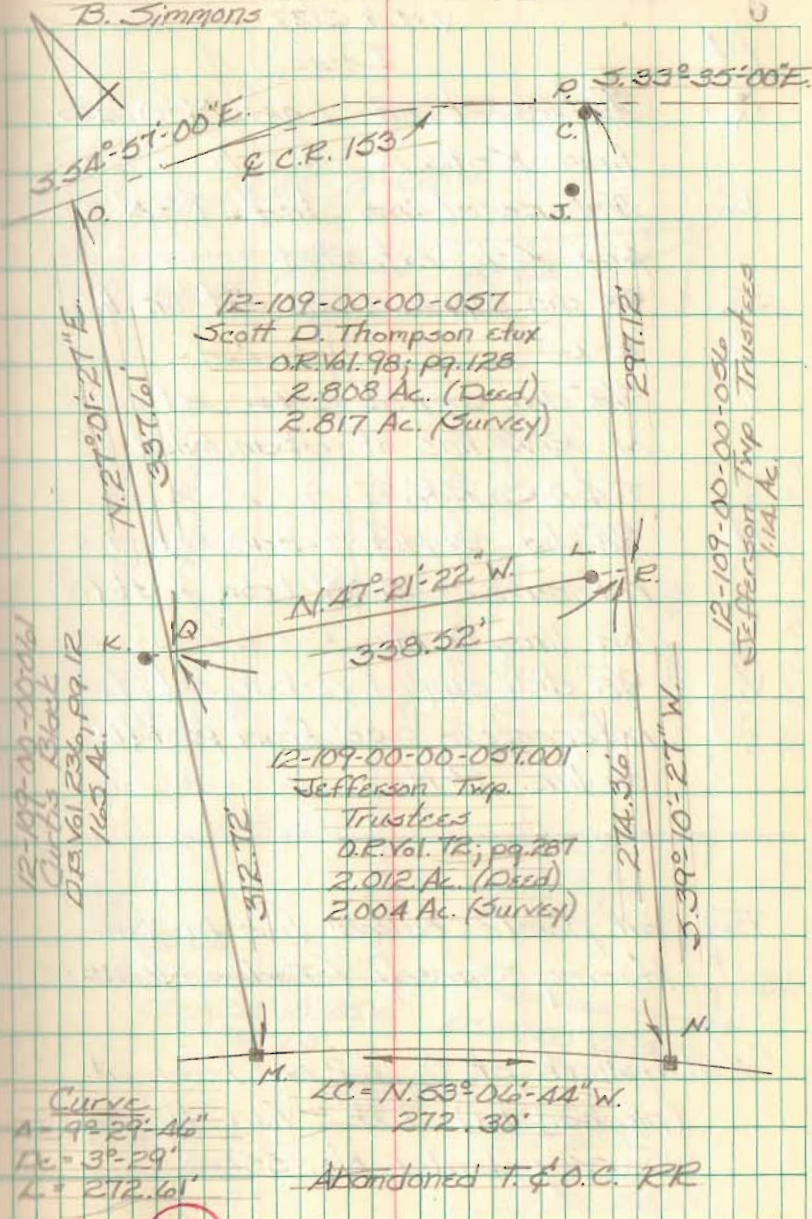 B. Simmons
S.33°-35'-00"E.
P.
C.
S.54°-57'-00"E.
₵ C.R. 153
O.
J.
12-109-00-00-057
Scott D. Thompson etux
O.R.Vol.98; pg.128
2.808 Ac. (Deed)
2.817 Ac. (Survey)
N.27°-01'-27"E.
337.61'
297.12'
12-109-00-00-056
Jefferson Twp. Trustees
1.14 Ac.
N.47°-21'-22"W.
338.52'
L.
R.
K.
Q
12-109-00-00-061
Curtis Black
O.R.Vol 236, pg.12
165 Ac.
12-109-00-00-057.001
Jefferson Twp.
Trustees
O.R.Vol.72; pg.287
2.012 Ac. (Deed)
2.004 Ac. (Survey)
312.72'
274.36'
S.39°-10'-27"W.
M.
N.
LC = N.53°-06'-44"W.
272.30'
Curve
Δ = 9°-29'-46"
Dc = 3°-29'
L = 272.61'
Abandoned T.&O.C. RR